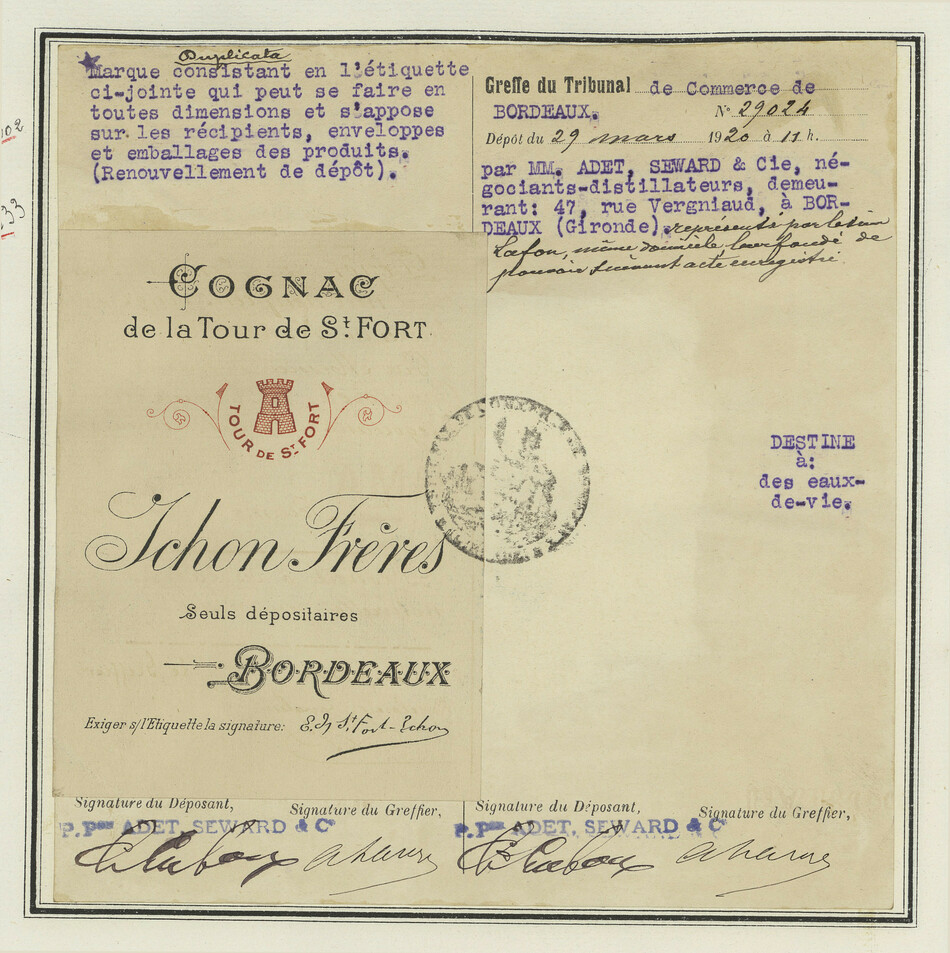 Duplicata
Marque consistant en l'étiquette
ci-jointe qui peut se faire en
toutes dimensions et s'appose
sur les récipients, enveloppes
et emballages des produits.
(Renouvellement de dépôt).
Greffe du Tribunal de Commerce de
BORDEAUX. N° 29024
Dépôt du 29 mars 1920 à 11 h.
par MM. ADET, SEWARD & Cie, né-
gociants-distillateurs, demeu-
rant: 47, rue Vergniaud, à BOR-
DEAUX (Gironde), représentés par le sieur
Lafon, même domicile leur fondé de
pouvoir suivant acte enregistré.
102
33
COGNAC
de la Tour de St. FORT
TOUR DE St. FORT
Ichon Frères
Seuls dépositaires
BORDEAUX
Exiger s/l'Etiquette la signature: E. St Fort-Ichon
DESTINE
à:
des eaux-
de-vie.
Signature du Déposant, Signature du Greffier,
P. Pon ADET, SEWARD & Co
Signature du Déposant, Signature du Greffier,
P. Pon ADET, SEWARD & Co